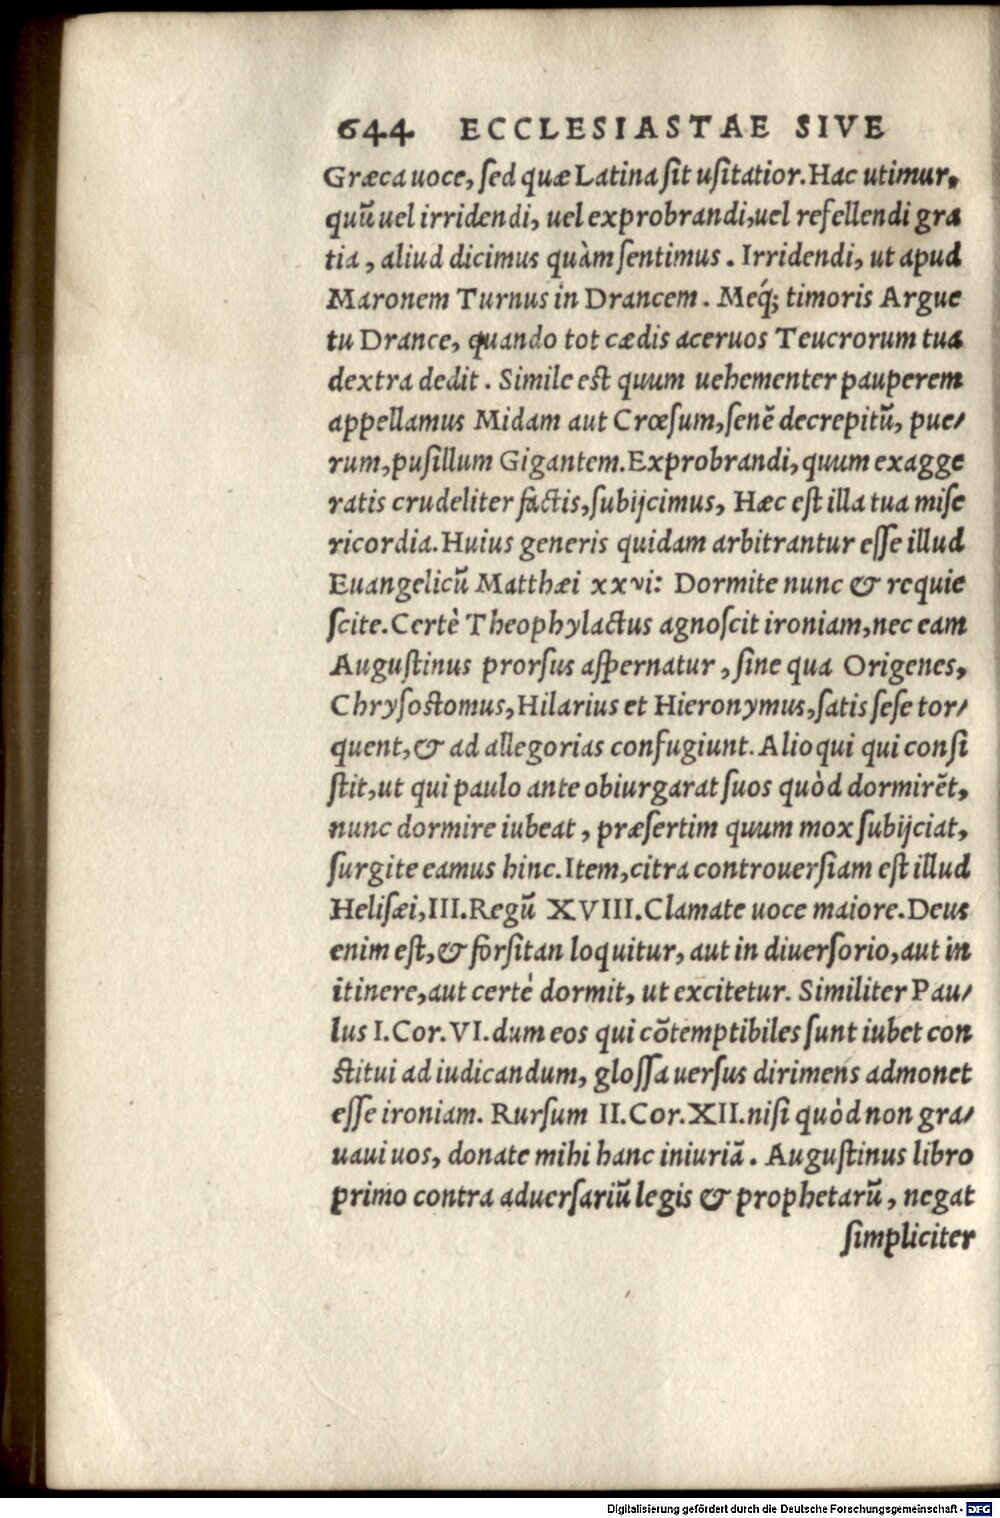 644 ECCLESIASTAE SIVE
Græca uoce, ſed quæ Latina ſit uſitatior. Hac utimur,
quũ uel irridendi, uel exprobrandi, uel refellendi gra
tia, aliud dicimus quàm ſentimus. Irridendi, ut apud
Maronem Turnus in Drancem. Meq́; timoris Argue
tu Drance, quando tot cædis aceruos Teucrorum tua
dextra dedit. Simile eſt quum uehementer pauperem
appellamus Midam aut Crœſum, ſenẽ decrepitũ, pue/
rum, puſillum Gigantem. Exprobrandi, quum exagge
ratis crudeliter factis, ſubijcimus, Hæc eſt illa tua miſe
ricordia. Huius generis quidam arbitrantur eſſe illud
Euangelicũ Matthæi xxvi: Dormite nunc & requie
ſcite. Certè Theophylactus agnoſcit ironiam, nec eam
Auguſtinus prorſus aſpernatur, ſine qua Origenes,
Chryſoſtomus, Hilarius et Hieronymus, ſatis ſeſe tor/
quent, & ad allegorias confugiunt. Alioqui qui conſi
ſtit, ut qui paulo ante obiurgarat ſuos quòd dormirẽt,
nunc dormire iubeat, præſertim quum mox ſubijciat,
ſurgite eamus hinc. Item, citra controuerſiam eſt illud
Heliſæi, III. Regũ XVIII. Clamate uoce maiore. Deus
enim eſt, & forſitan loquitur, aut in diuerſorio, aut in
itinere, aut certè dormit, ut excitetur. Similiter Pau/
lus I. Cor. VI. dum eos qui cõtemptibiles ſunt iubet con
ſtitui ad iudicandum, gloſſa uerſus dirimens admonet
eſſe ironiam. Rurſum II. Cor. XII. niſi quòd non gra/
uaui uos, donate mihi hanc iniuriã. Auguſtinus libro
primo contra aduerſariũ legis & prophetarũ, negat
ſimpliciter
Digitalisierung gefördert durch die Deutsche Forschungsgemeinschaft - DFG